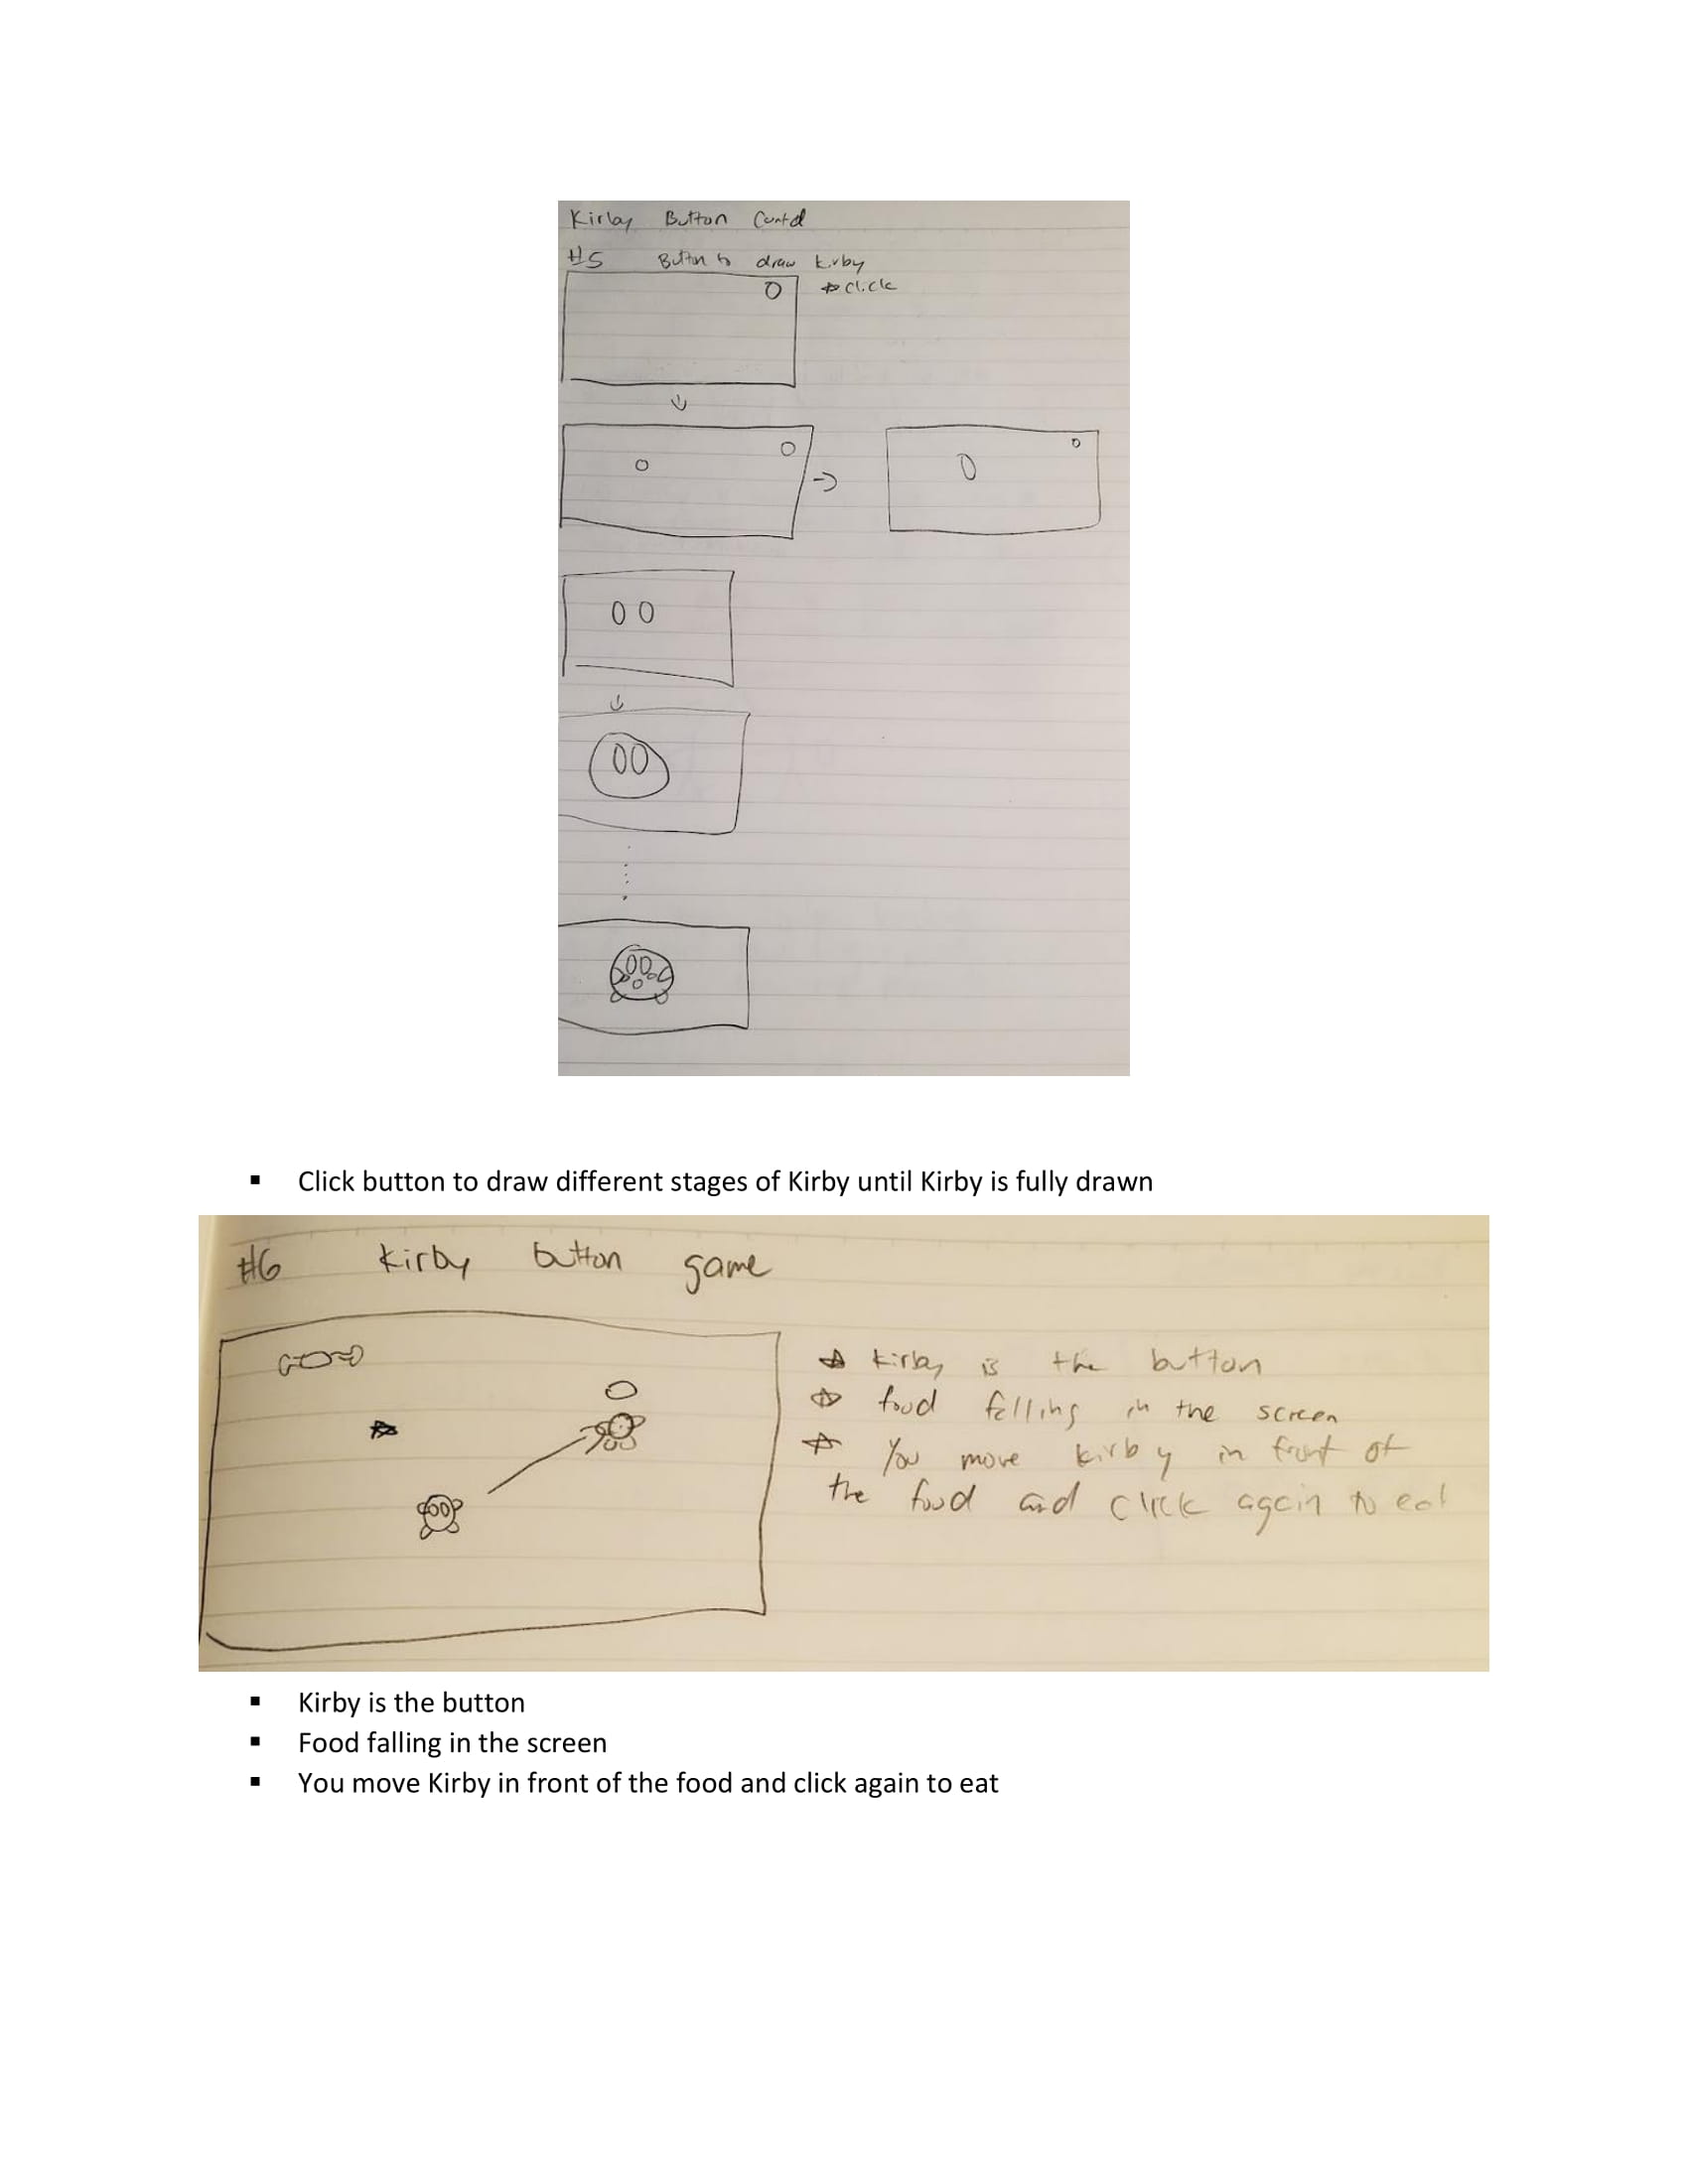 Kirby Button Cont'd
#5 Button to draw Kirby
click
Click button to draw different stages of Kirby until Kirby is fully drawn
#6 Kirby button game
Kirby is the button
food falling in the screen
You move kirby in front of
the food and click again to eat
Kirby is the button
Food falling in the screen
You move Kirby in front of the food and click again to eat